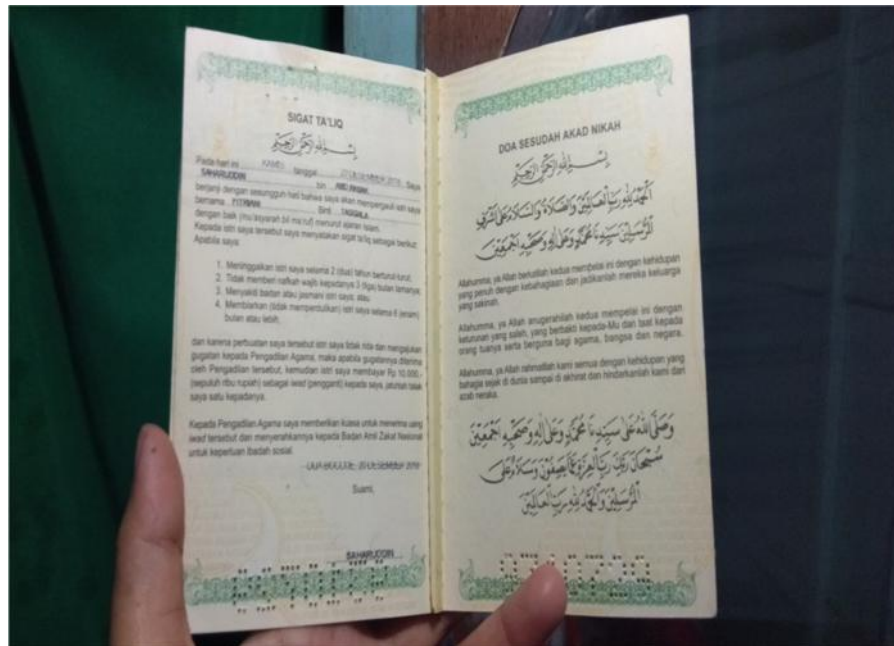 SIGAT TA'LIQ
بِسْمِ اللَّهِ الرَّحْمَنِ الرَّحِيمِ
Pada hari ini KAMIS tanggal Saya
SAHARUDDIN bin
berjanji dengan sesungguh hati bahwa saya akan mempergauli istri saya
bernama FITRIANI Binti
dengan baik (mu'asyarah bil ma'ruf) menurut ajaran Islam.
Kepada istri saya tersebut saya menyatakan sigat ta'liq sebagai berikut:
Apabila saya:
1. Meninggalkan istri saya selama 2 (dua) tahun berturut-turut;
2. Tidak memberi nafkah wajib kepadanya 3 (tiga) bulan lamanya;
3. Menyakiti badan atau jasmani istri saya; atau
4. Membiarkan (tidak mempedulikan) istri saya selama 6 (enam)
bulan atau lebih,
dan karena perbuatan saya tersebut istri saya tidak rida dan mengajukan
gugatan kepada Pengadilan Agama, maka apabila gugatannya diterima
oleh Pengadilan tersebut, kemudian istri saya membayar Rp 10.000,-
(sepuluh ribu rupiah) sebagai iwad (pengganti) kepada saya, jatuhlah talak
saya satu kepadanya.
Kepada Pengadilan Agama saya memberikan kuasa untuk menerima uang
iwad tersebut dan menyerahkannya kepada Badan Amil Zakat Nasional
untuk keperluan ibadah sosial.
Suami,
SAHARUDDIN
DOA SESUDAH AKAD NIKAH
بِسْمِ اللَّهِ الرَّحْمَنِ الرَّحِيمِ
الْحَمْدُ لِلَّهِ رَبِّ الْعَالَمِيْنَ وَالصَّلَاةُ وَالسَّلَامُ عَلَى أَشْرَفِ
الْمُرْسَلِيْنَ سَيِّدِنَا مُحَمَّدٍ وَعَلَى آلِهِ وَصَحْبِهِ أَجْمَعِيْنَ
Allahumma, ya Allah berkatilah kedua mempelai ini dengan kehidupan
yang penuh dengan kebahagiaan dan jadikanlah mereka keluarga
yang sakinah.
Allahumma, ya Allah anugerahilah kedua mempelai ini dengan
keturunan yang saleh, yang berbakti kepada-Mu dan taat kepada
orang tuanya serta berguna bagi agama, bangsa dan negara.
Allahumma, ya Allah rahmatilah kami semua dengan kehidupan yang
bahagia sejak di dunia sampai di akhirat dan hindarkanlah kami dari
azab neraka.
وَصَلَّى اللَّهُ عَلَى سَيِّدِنَا مُحَمَّدٍ وَعَلَى آلِهِ وَصَحْبِهِ أَجْمَعِيْنَ
سُبْحَانَ رَبِّكَ رَبِّ الْعِزَّةِ عَمَّا يَصِفُوْنَ وَسَلَامٌ عَلَى
الْمُرْسَلِيْنَ وَالْحَمْدُ لِلَّهِ رَبِّ الْعَالَمِيْنَ